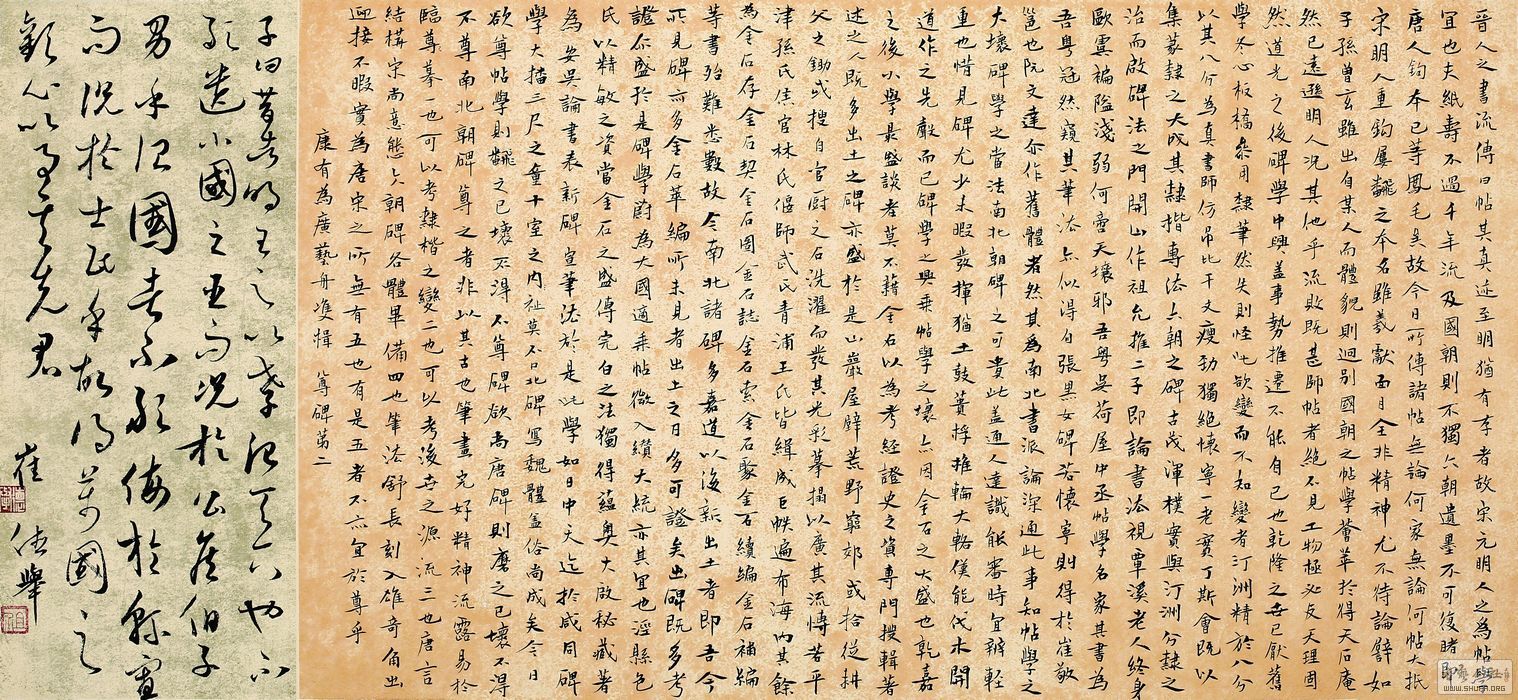 晉人之書流傳曰帖其真迹至明猶有存者故宋元明人之為帖
宜也夫紙壽不過千年流及國朝則不獨六朝遺墨不可復睹即
唐人鈎本已等鳳毛矣故今日所傳諸帖無論何家無論何帖大抵
宋明人重鈎屢翻之本名雖羲獻面目全非精神尤不待論譬如
子孫曾玄雖出自某人而體貌則迥別國朝之帖學薈萃於得天石庵
然已遠遜明人況其他乎流敗既甚師帖者絕不見工物極必反天理固
然道光之後碑學中興蓋事勢推遷不能自已也乾隆之世已厭舊
學冬心板橋參用隸筆然失則怪此欲變而不知變者汀洲精於八分
以其八分為真書師仿吊比干文瘦勁獨絕懷寧一老實丁斯會既以
集篆隸之大成其隸楷專法六朝之碑古茂渾樸實與汀洲分隸之
治而啟碑法之門開山作祖允推二子即論書法視覃溪老人終身
歐虞褊隘淺弱何啻天壤邪吾粵吳荷屋中丞帖學名家其書為
吾粵冠然窺其筆法亦似得自張黑女碑若懷寧則得於崔敬
邕也阮文達亦作舊體者然其為南北書派論深通此事知帖學之
大壞碑學之當法南北朝碑之可貴此蓋通人達識能審時宜辨輕
重也惜見碑尤少未暇發揮猶土鼓蕢桴推輪大輅僅能伐木開
道作之先聲而已碑學之興乘帖學之壞亦因金石之大盛也乾嘉
之後小學最盛談者莫不藉金石以為考經證史之資專門搜輯著
述之人既多出土之碑亦盛於是山巖屋壁荒野窮郊或拾從耕
父之鋤或搜自官廚之石洗濯而發其光彩摹搨以廣其流傳若平
津孫氏侯官林氏偃師武氏青浦王氏皆緝成巨帙遍布海內其餘
為金石存金石契金石圖金石誌金石索金石聚金石續編金石補編
等書殆難悉數故今南北諸碑多嘉道以後新出土者即吾今
所見碑亦多金石萃編所未見者出土之日多可證矣出碑既多考
證亦盛於是碑學蔚為大國適乘帖微入纘大統亦其宜也涇縣包
氏以精敏之資當金石之盛傳完白之法獨得蘊奧大啟秘藏著
為安吳論書表新碑宣筆法於是此學如日中天迄於咸同碑
學大播三尺之童十室之內祉莫不口北碑寫魏體蓋俗尚成矣今日
欲尊帖學則翻之已壞不得不尊碑欲尚唐碑則磨之已壞不得
不尊南北朝碑尊之者非以其古也筆畫完好精神流露易於
臨尊摹一也可以考隸楷之變二也可以考後世之源流三也唐言
結構宋尚意態六朝碑各體畢備四也筆法舒長刻入雄奇角出
迎接不暇實為唐宋之所無有五也有是五者不亦宜於尊乎
康有為廣藝舟雙楫 尊碑第二
子曰昔者明王之以孝治天下也不
敢遺小國之臣而況於公侯伯子
男乎治國者不敢侮於鰥寡
而況於士民乎故得萬國之
歡心以事其先君
崔德舉
WWW.SHUFA.ORG